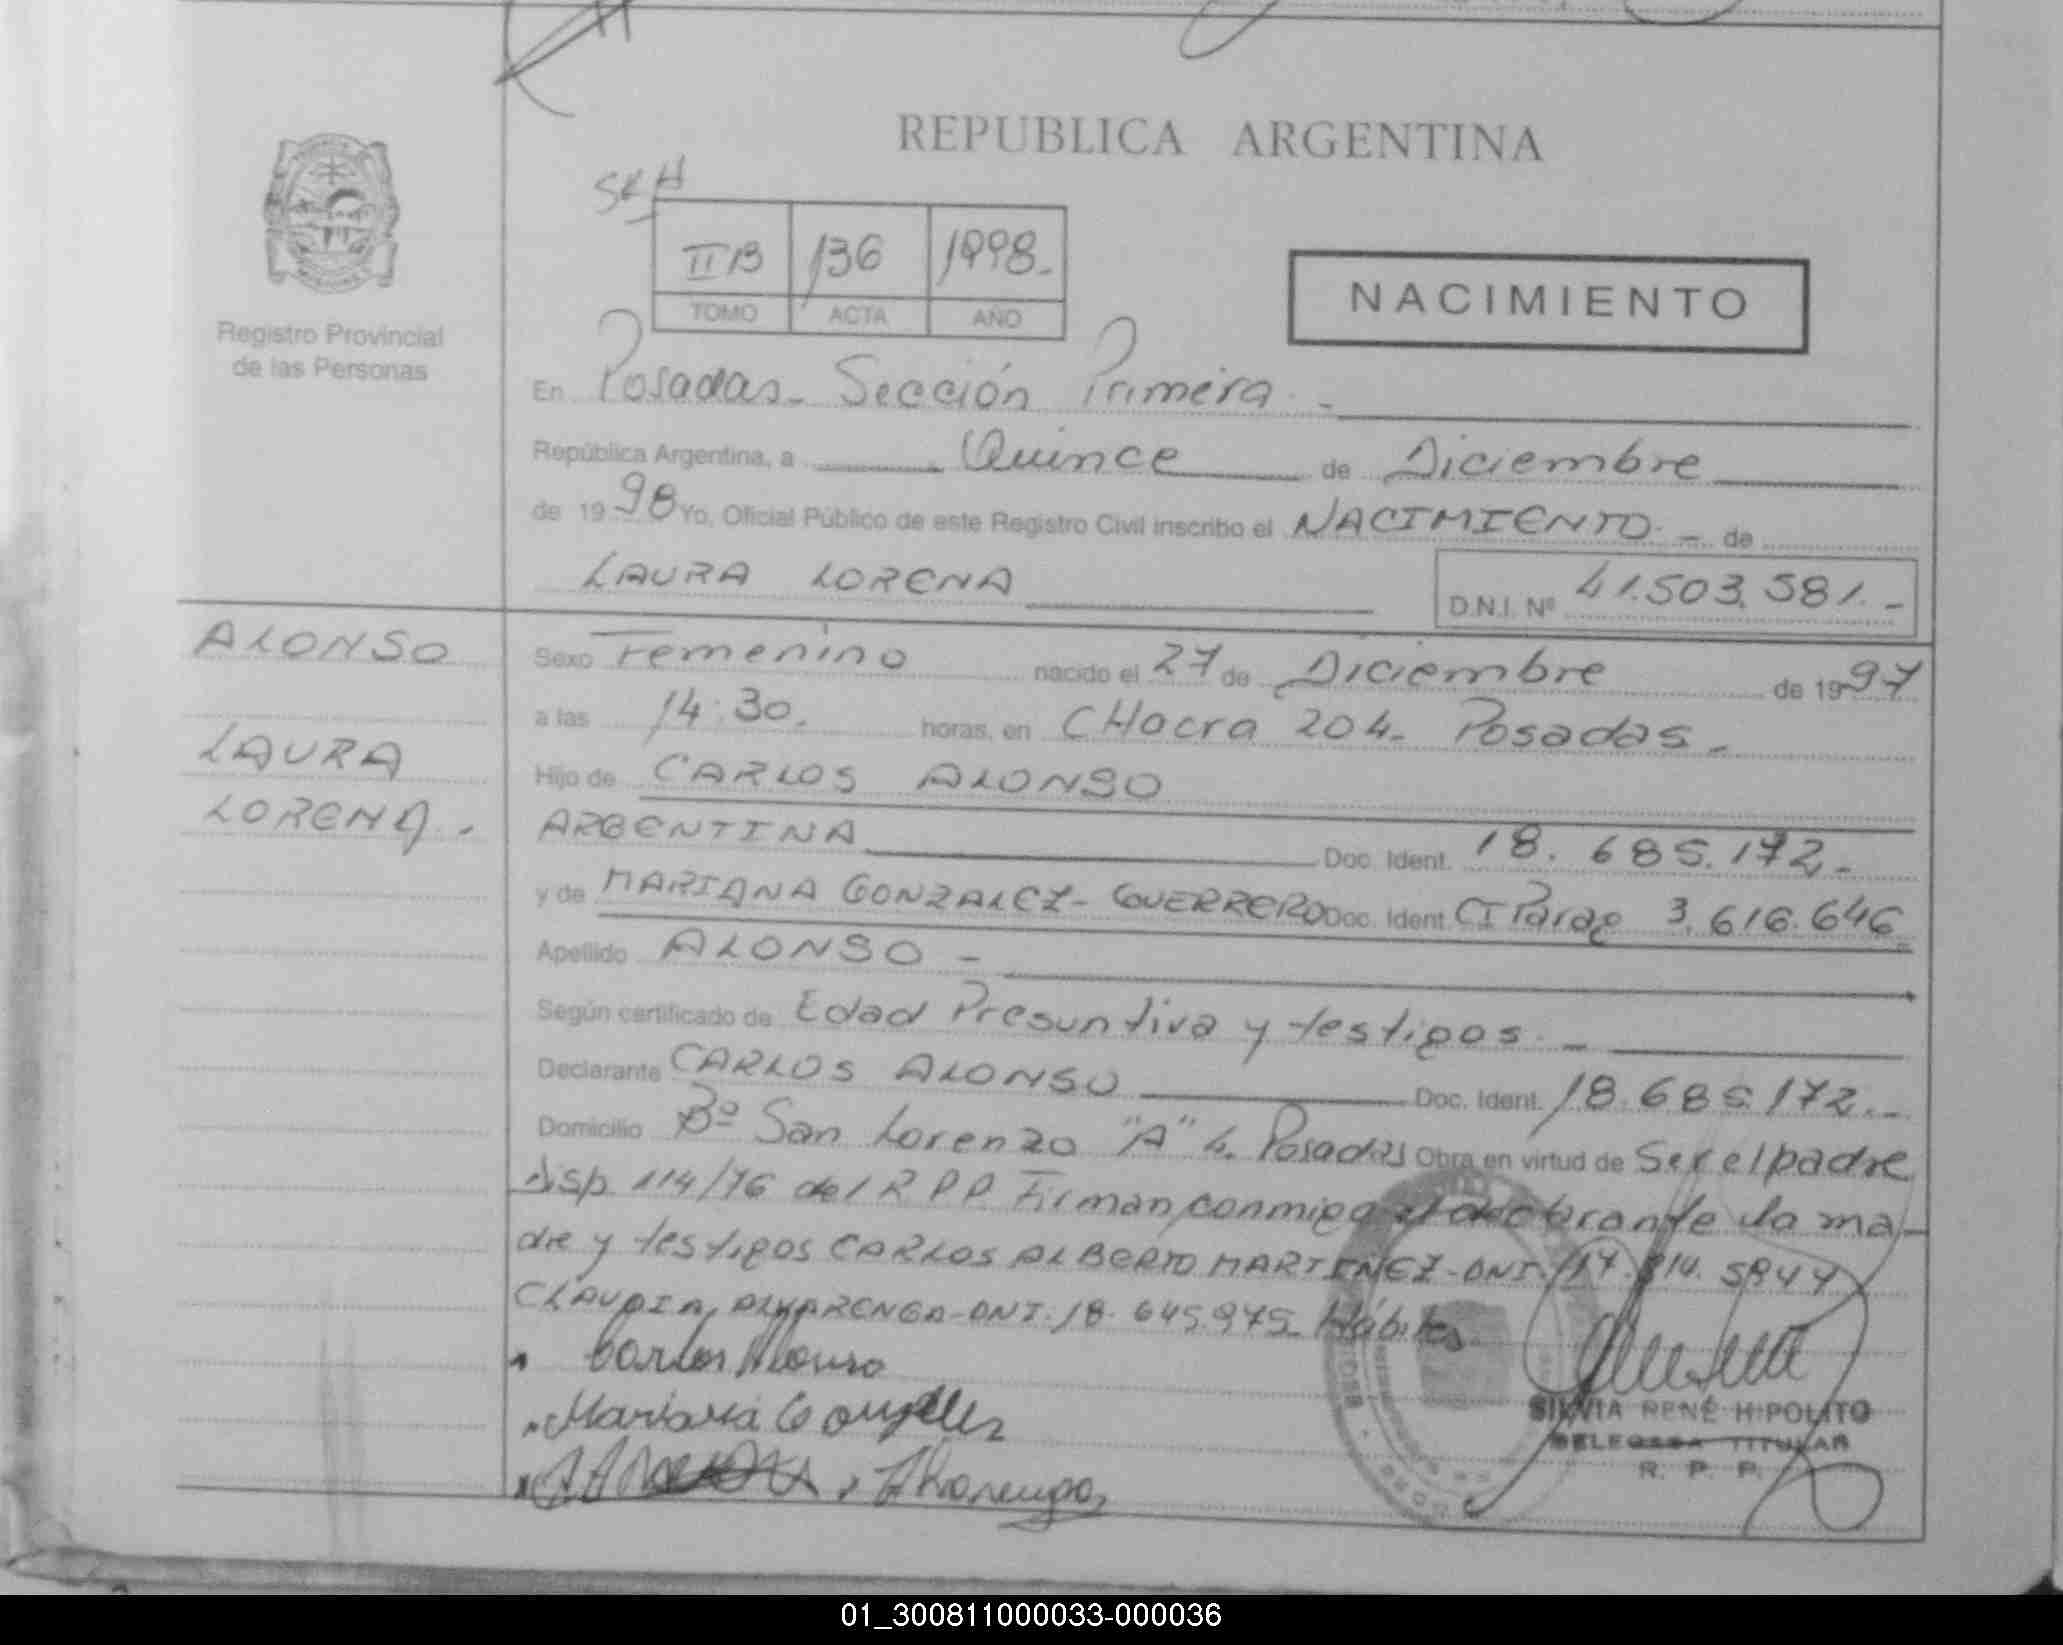 REPUBLICA ARGENTINA
II B 136 1998.
TOMO ACTA AÑO
NACIMIENTO
Registro Provincial
de las Personas
En Posadas - Sección Primera -
República Argentina, a Quince de Diciembre
de 1998 Yo, Oficial Público de este Registro Civil inscribo el NACIMIENTO - de
LAURA LORENA
D.N.I. Nº 41.503.581.-
ALONSO
LAURA
LORENA.
Sexo Femenino nacido el 27 de Diciembre de 1997
a las 14:30. horas, en CHacra 204. Posadas.
Hijo de CARLOS ALONSO
ARGENTINA Doc. Ident. 18.685.172.-
y de MARIANA GONZALEZ - GUERRERO Doc. Ident. CI Parag 3.616.646
Apellido ALONSO -
Según certificado de Edad Presuntiva y testigos. -
Declarante CARLOS ALONSO Doc. Ident. 18.685.172.-
Domicilio Bº San Lorenzo "A" 4. Posadas Obra en virtud de Ser el padre
Disp. 114/76 del R P P. Firman conmigo el declarante la ma-
dre y testigos CARLOS ALBERTO MARTINEZ - DNI.
CLAUDIA ALVARENGA - DNI. 18.645.975. Hábiles
Carlos Alonso
Mariana Gonzalez
Alvarenga
SILVIA RENÉ HIPOLITO
DELEGADA TITULAR
R. P. P.
01_300811000033-000036